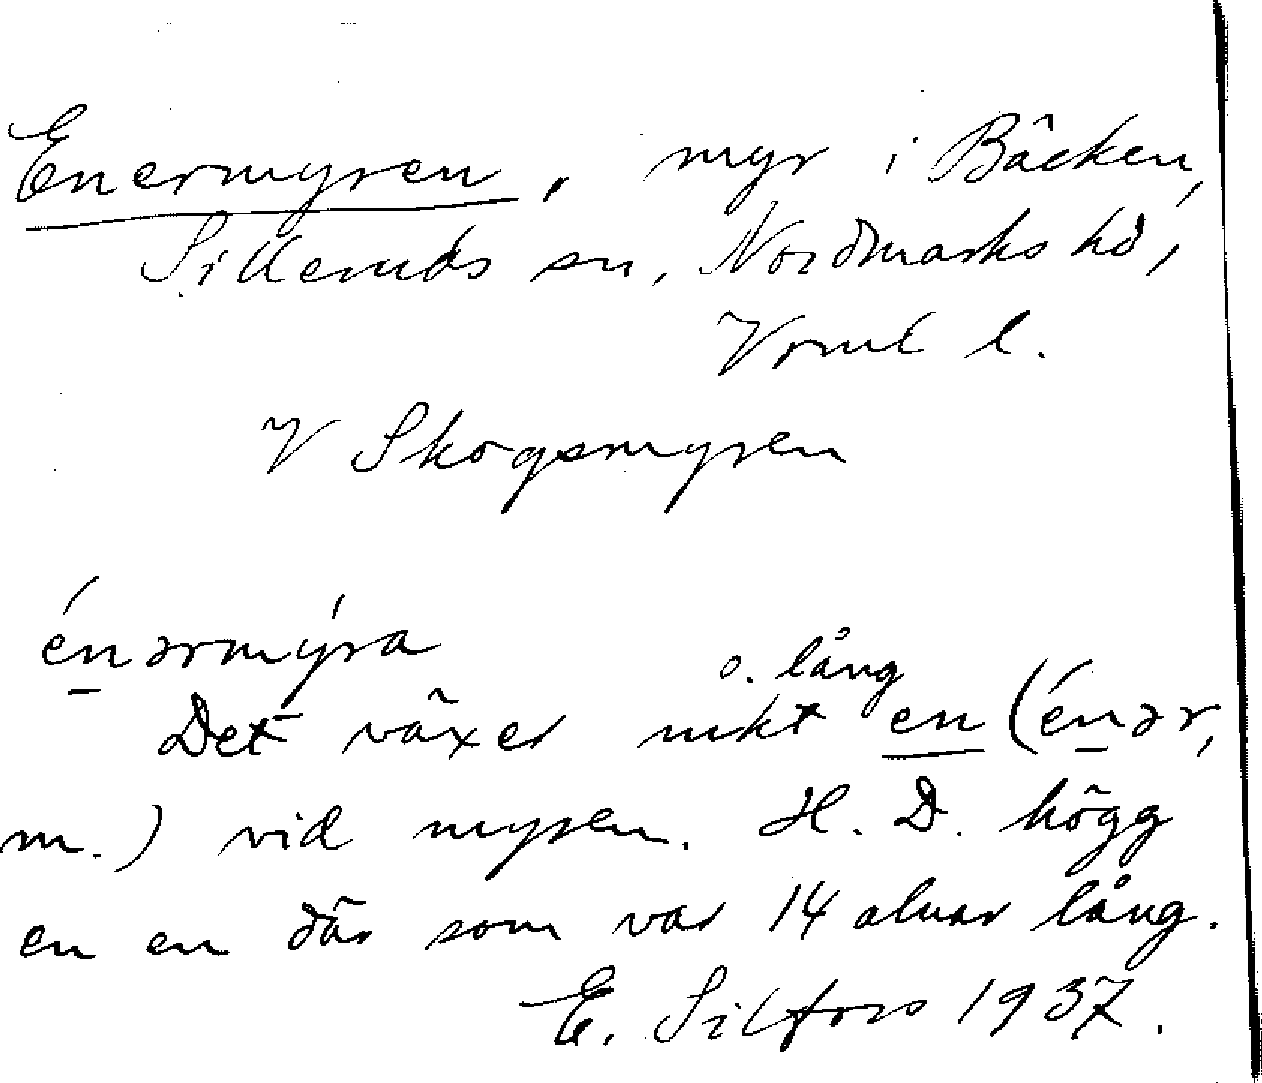 Enermyren, myr i Bäcken,
Silleruds sn, Nordmarks hd,
Vrml l.
V Skogsmyren
énərmýra
Det växer mkt o. lång en (énər,
m.) vid myren. H. D. högg
en en där som var 14 alnar lång.
E. Silfors 1937.